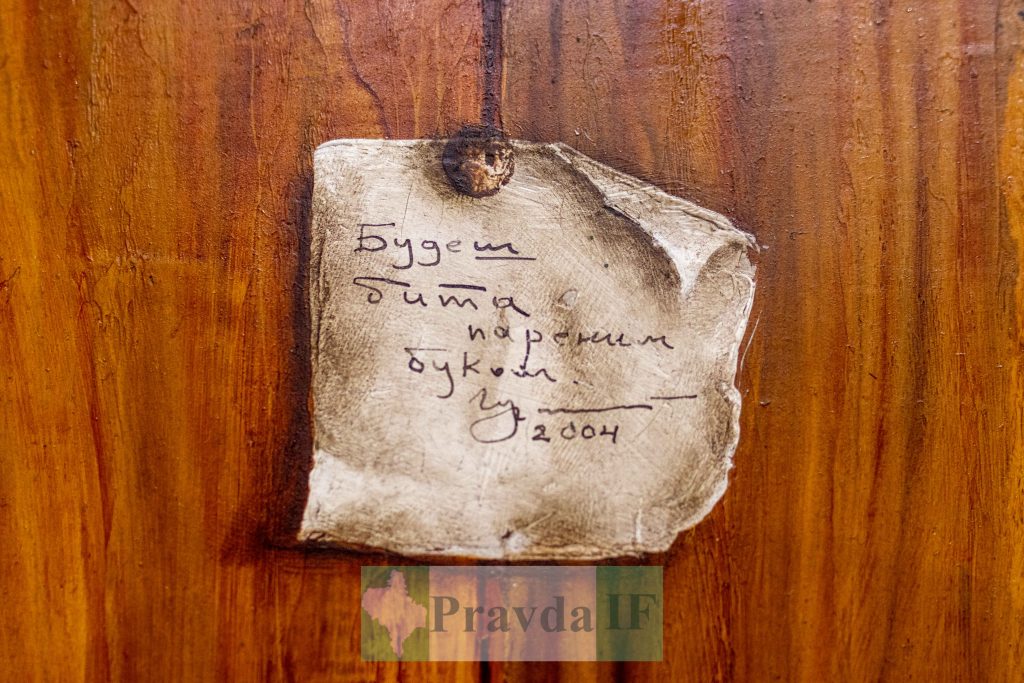 Будеш
бита
пареним
буком.
2004
Pravda IF